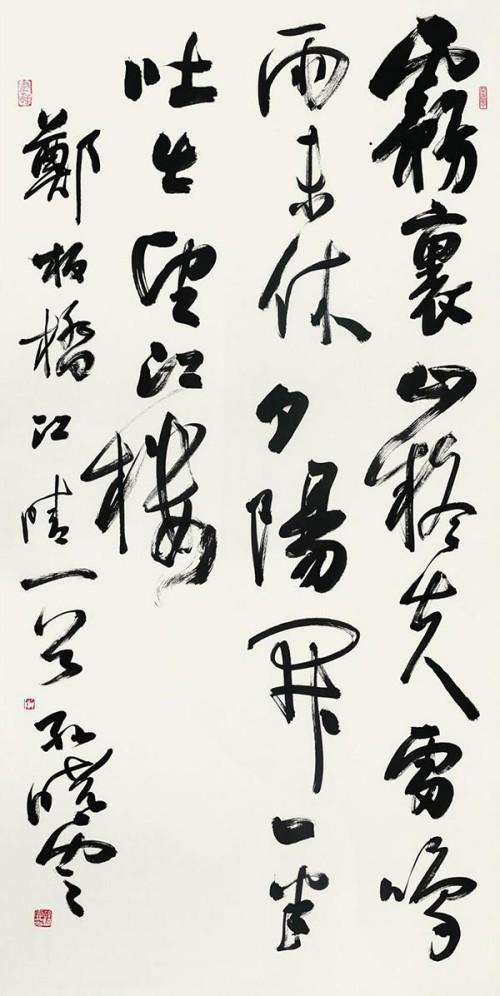 霧裹山疑失雷鳴
雨未休夕陽開一半
吐出望江樓
鄭板橋江晴一首 孫曉雲